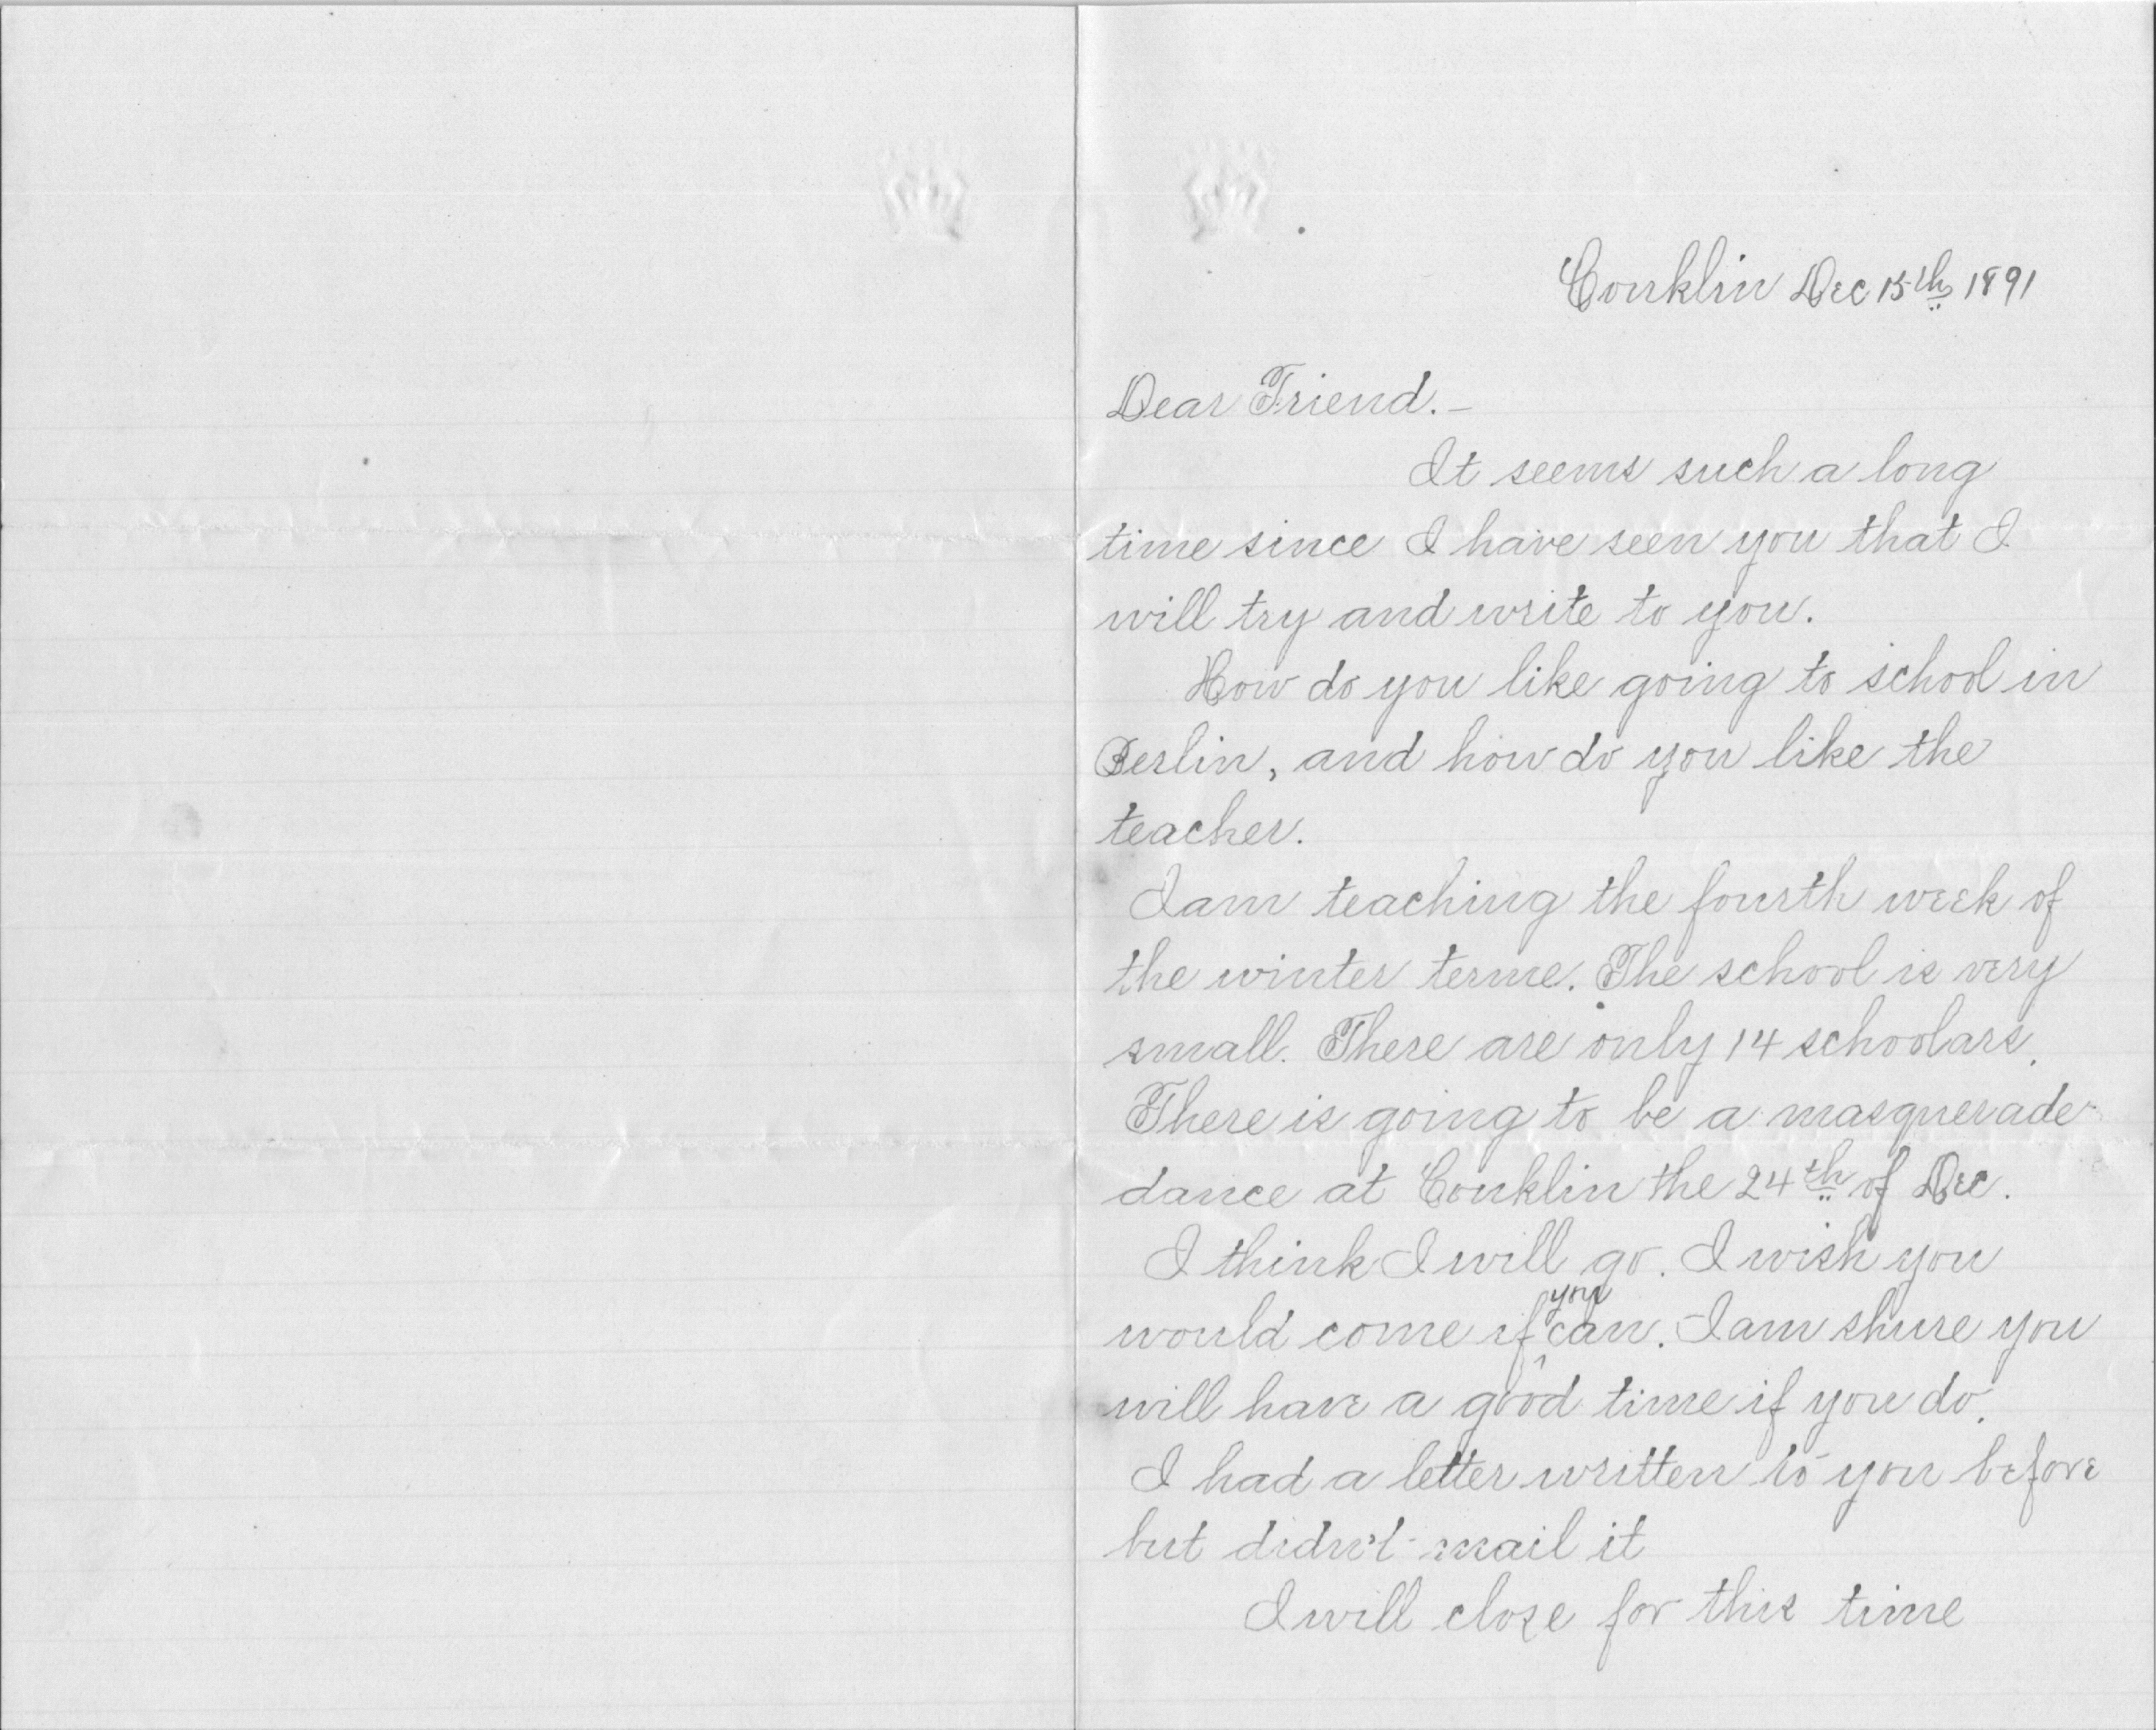 Conklin Dec 15th 1891
Dear Friend.—
It seems such a long
time since I have seen you that I
will try and write to you.
How do you like going to school in
Berlin, and how do you like the
teacher.
I am teaching the fourth week of
the winter terme. The school is very
small. There are only 14 schoolars.
There is going to be a masquerade
dance at Conklin the 24th of Dec.
I think I will go. I wish you
would come if you can. I am shure you
will have a good time if you do.
I had a letter written to you before
but didn't mail it
I will close for this time